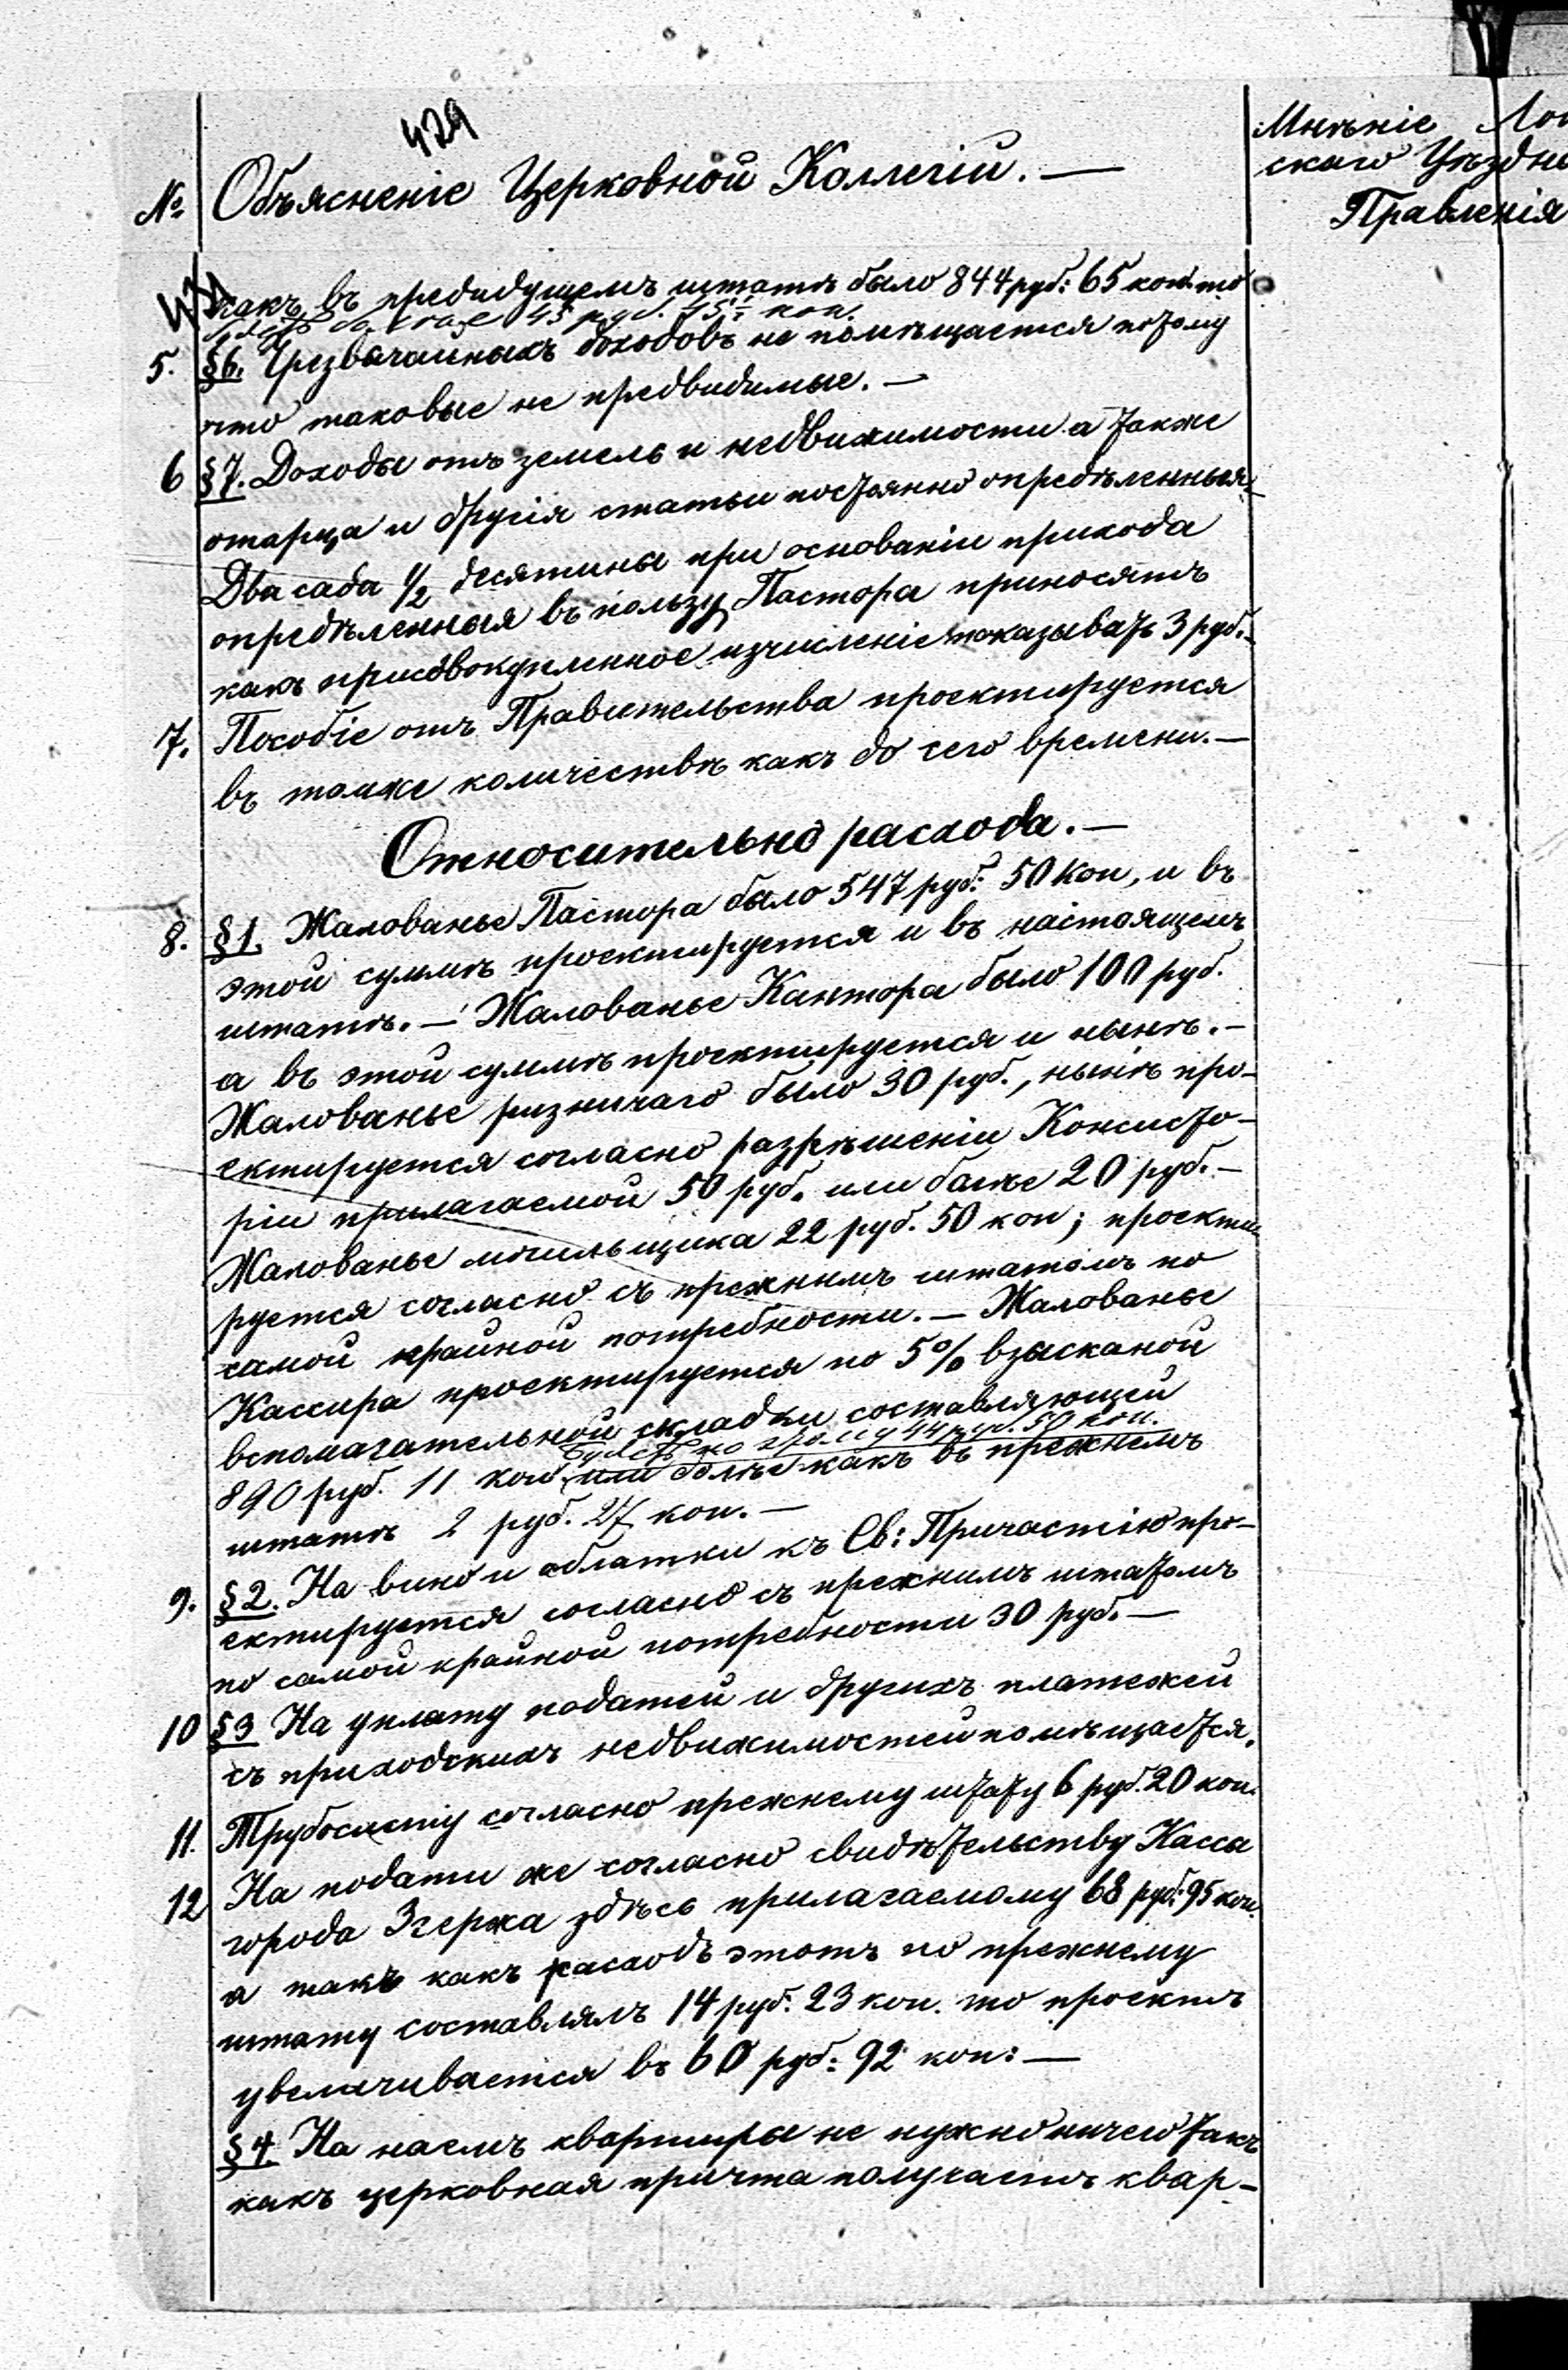 429
№ Объясненіе Церковной Коллегіи. —
Мнѣніе
скаго Уѣздна
Правленія
такъ въ предидущемъ штатѣ было 844 руб: 65 коп. то
45 руб. коп.
5. §6. Чрезвычайныхъ доходовъ не помѣщается потому
что таковые не предвидимые. —
6 §7. Доходы отъ земель и недвижимости а также
и другія статьи постоянно опредѣленныя
Два сада 1/2 десятины при основаніи прихода
опредѣленныя въ пользу Пастора приносятъ
какъ присовокупленное изчисленіе показываетъ 3 руб. —
7. Пособіе отъ Правительства проектируется
въ томже количествѣ какъ до сего времени. —
Относительно расхода. —
8. §1. Жалованье Пастора было 547 руб: 50 Коп, и въ
этой суммѣ проектируется и въ настоящемъ
штатѣ. — Жалованье Кантора было 100 руб.
а въ этой суммѣ проектируется и нынѣ. —
Жалованье ризничаго было 30 руб., нынѣ про-
ектируется согласно разрѣшеніи Консисто-
ріи прилагаемой 50 руб. или баже 20 руб. —
Жалованье могильщика 22 руб. 50 коп; проекти
руется согласно съ прежнимъ штатомъ по
самой крайной потребности. — Жалованье
Кассира проектируется по 5% взысканой
вспомагательной складки составляющей
будетъ по этому 44 руб. 50 коп.
890 руб. 11 коп. или болѣе какъ въ прежнемъ
штатѣ 2 руб. 27 коп. —
9. §2. На вино и облатки къ Св: Причастію про-
ектируется согласно съ прежнимъ штатомъ
по самой крайной потребности 30 руб. —
10 §3 На уплату податей и другихъ платежей
съ приходскихъ недвижимостей помѣщается.
11. Трубочисту согласно прежнему штату 6 руб. 20 коп.
12 На подати же согласно свидѣтельству Кассы
города Згержа здѣсь прилагаемому 68 руб: 95 коп.
а такъ какъ расходъ этотъ по прежнему
штату составлялъ 14 руб: 23 коп. то проектъ
увеличивается въ 60 руб: 92 коп: —
§4 На наемъ квартиры не нужно ничего такъ
какъ церковная причта получаетъ квар-